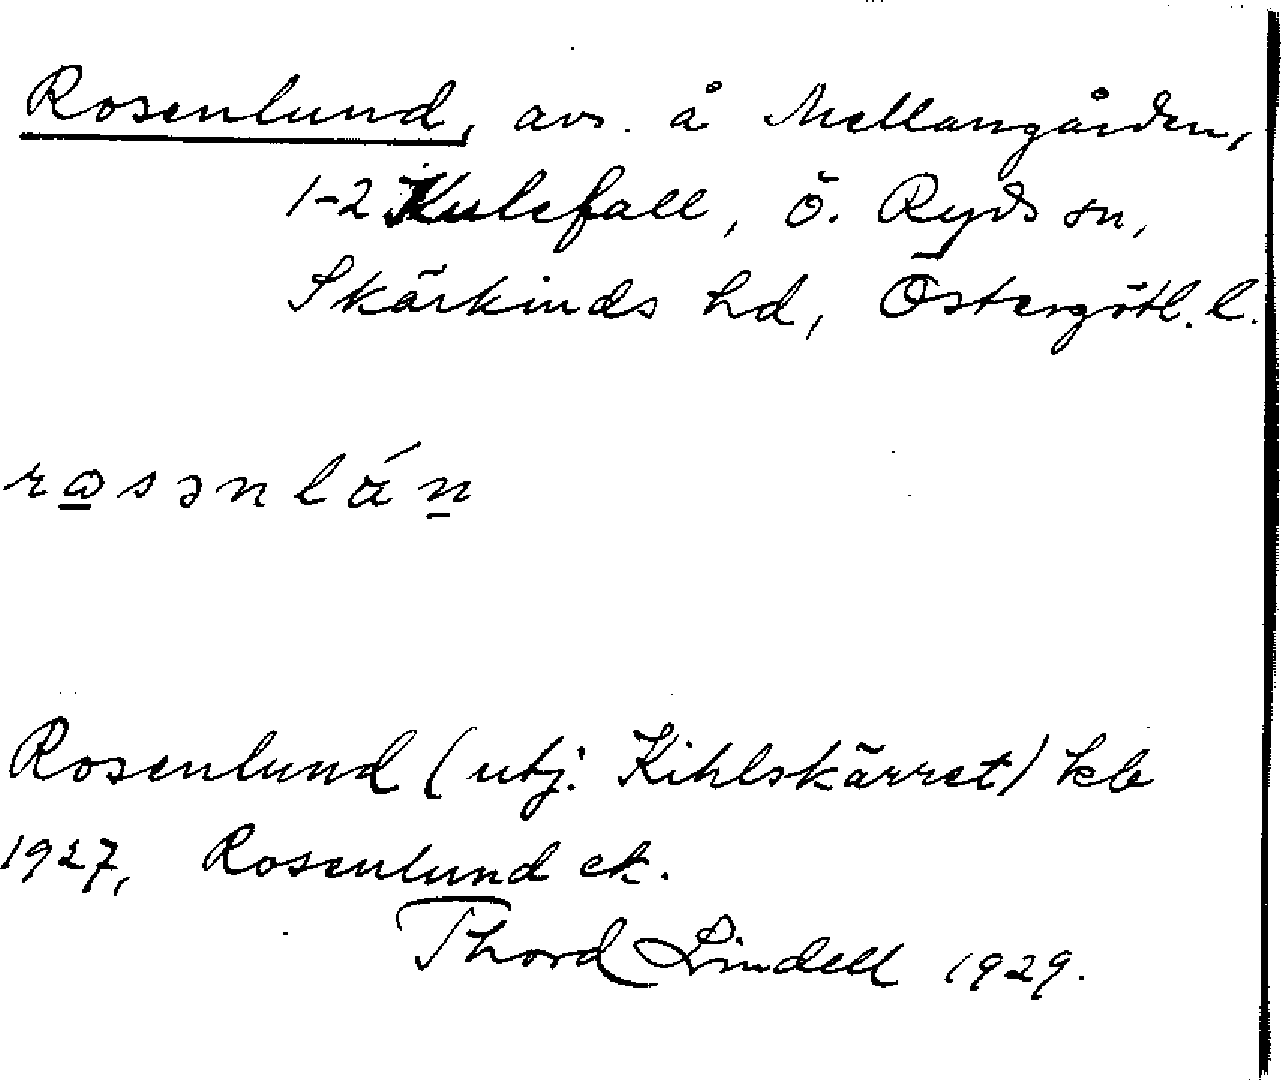 Rosenlund, avs. å Mellangården,
1-2 Kulefall, Ö. Ryds sn,
Skärkinds hd, Östergötl. l.
Rosenlund (utj. Kihlskärret) kb
1927, Rosenlund ek.
Thord Lindell 1929.